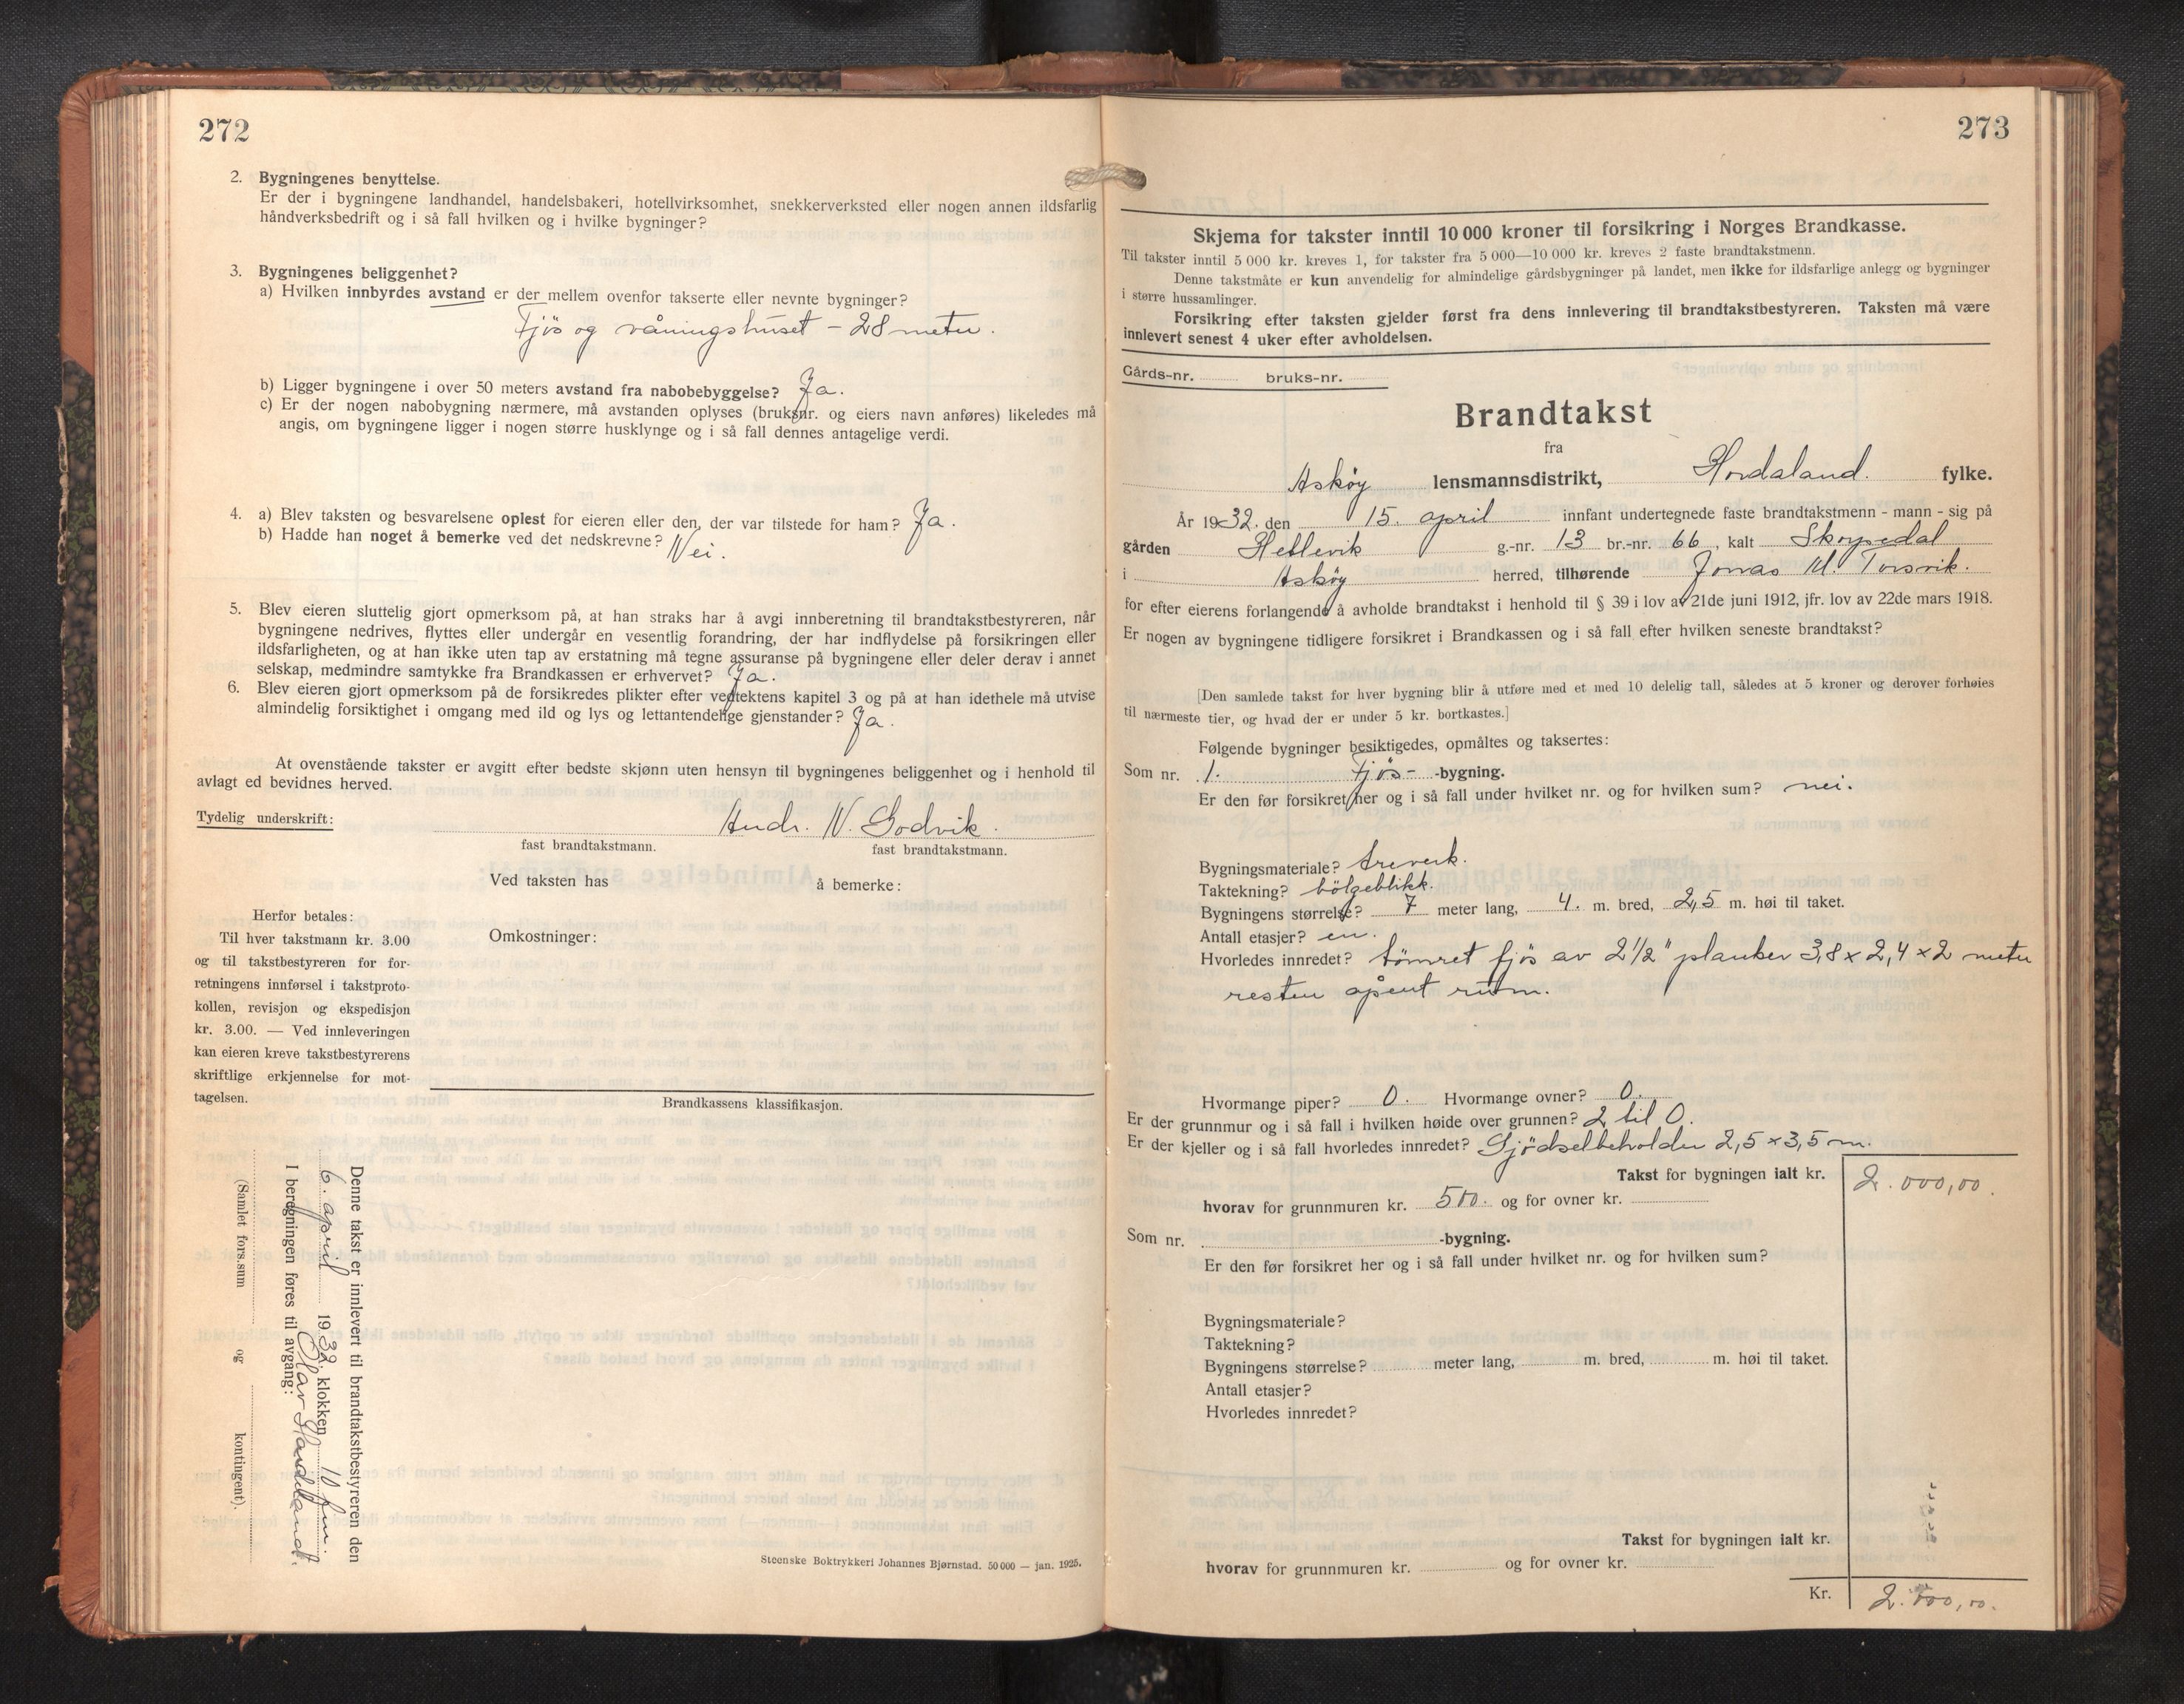 272
2. Bygningenes benyttelse.
Er der i bygningene landhandel, handelsbakeri, hotellvirksomhet, snekkerverksted eller nogen annen ildsfarlig
håndverksbedrift og i så fall hvilken og i hvilke bygninger?
3. Bygningenes beliggenhet?
a) Hvilken innbyrdes avstand er der mellem ovenfor takserte eller nevnte bygninger?
Fjös og våningshuset – 28 meter.
b) Ligger bygningene i over 50 meters avstand fra nabobebyggelse? Ja.
c) Er der nogen nabobygning nærmere, må avstanden oplyses (bruksnr. og eiers navn anføres) likeledes må
angis, om bygningene ligger i nogen større husklynge og i så fall dennes antagelige verdi.
4. a) Blev taksten og besvarelsene oplest for eieren eller den, der var tilstede for ham? Ja.
b) Hadde han noget å bemerke ved det nedskrevne? Nei.
5. Blev eieren sluttelig gjort opmerksom på, at han straks har å avgi innberetning til brandtakstbestyreren, når
bygningene nedrives, flyttes eller undergår en vesentlig forandring, der har indflydelse på forsikringen eller
ildsfarligheten, og at han ikke uten tap av erstatning må tegne assuranse på bygningene eller deler derav i annet
selskap, medmindre samtykke fra Brandkassen er erhvervet? Ja.
6. Blev eieren gjort opmerksom på de forsikredes plikter efter vedtektens kapitel 3 og på at han idethele må utvise
almindelig forsiktighet i omgang med ild og lys og lettantendelige gjenstander? Ja.
At ovenstående takster er avgitt efter bedste skjønn uten hensyn til bygningenes beliggenhet og i henhold til
avlagt ed bevidnes herved.
Tydelig underskrift: Andr. N. Godvik.
fast brandtakstmann. fast brandtakstmann.
Ved taksten has å bemerke:
Herfor betales:
Til hver takstmann kr. 3.00
og til takstbestyreren for for-
retningens innførsel i takstproto-
kollen, revisjon og ekspedisjon
kr. 3.00. — Ved innleveringen
kan eieren kreve takstbestyrerens
skriftlige erkjennelse for mot-
tagelsen.
Omkostninger:
Brandkassens klassifikasjon.
Denne takst er innlevert til brandtakstbestyreren den
6. april 1932, klokken 10 fm.
Olav Handeland.
I beregningen føres til avgang:
(Samlet fors.sum og kontingent).
Steenske Boktrykkeri Johannes Bjørnstad. 50 000 — jan. 1925.
273
Skjema for takster inntil 10 000 kroner til forsikring i Norges Brandkasse.
Til takster inntil 5 000 kr. kreves 1, for takster fra 5 000—10 000 kr. kreves 2 faste brandtakstmenn.
Denne takstmåte er kun anvendelig for almindelige gårdsbygninger på landet, men ikke for ildsfarlige anlegg og bygninger
i større hussamlinger.
Forsikring efter taksten gjelder først fra dens innlevering til brandtakstbestyreren. Taksten må være
innlevert senest 4 uker efter avholdelsen.
Gårds-nr. bruks-nr.
Brandtakst
fra
Askøy lensmannsdistrikt, Hordaland. fylke.
År 1932. den 15. april innfant undertegnede faste brandtakstmenn - mann - sig på
gården Hetlevik g.-nr. 13 br.-nr. 66, kalt Skorpedal
i Askøy herred, tilhørende Jonas M. Torsvik.
for efter eierens forlangende å avholde brandtakst i henhold til § 39 i lov av 21de juni 1912, jfr. lov av 22de mars 1918.
Er nogen av bygningene tidligere forsikret i Brandkassen og i så fall efter hvilken seneste brandtakst?
[Den samlede takst for hver bygning blir å utføre med et med 10 delelig tall, således at 5 kroner og derover forhøies
til nærmeste tier, og hvad der er under 5 kr. bortkastes.]
Følgende bygninger besiktigedes, opmåltes og taksertes:
Som nr. 1. Fjös- -bygning.
Er den før forsikret her og i så fall under hvilket nr. og for hvilken sum? nei.
Bygningsmateriale? treverk.
Taktekning? bölgeblikk.
Bygningens størrelse? 7 meter lang, 4. m. bred, 2,5 m. høi til taket.
Antall etasjer? en.
Hvorledes innredet? tömret fjös av 2 1/2" planker 3,8 x 2,4 x 2 meter
resten åpent rum.
Hvormange piper? 0. Hvormange ovner? 0.
Er der grunnmur og i så fall i hvilken høide over grunnen? 2 til 0.
Er der kjeller og i så fall hvorledes innredet? Gjödselbeholder 2,5 x 3,5 m.
Takst for bygningen ialt kr. 2.000,00.
hvorav for grunnmuren kr. 500. og for ovner kr.
Som nr. -bygning.
Er den før forsikret her og i så fall under hvilket nr. og for hvilken sum?
Bygningsmateriale?
Taktekning?
Bygningens størrelse? meter lang, m. bred, m. høi til taket.
Antall etasjer?
Hvorledes innredet?
Takst for bygningen ialt kr.
hvorav for grunnmuren kr. og for ovner kr.
Kr. 2.000,00.